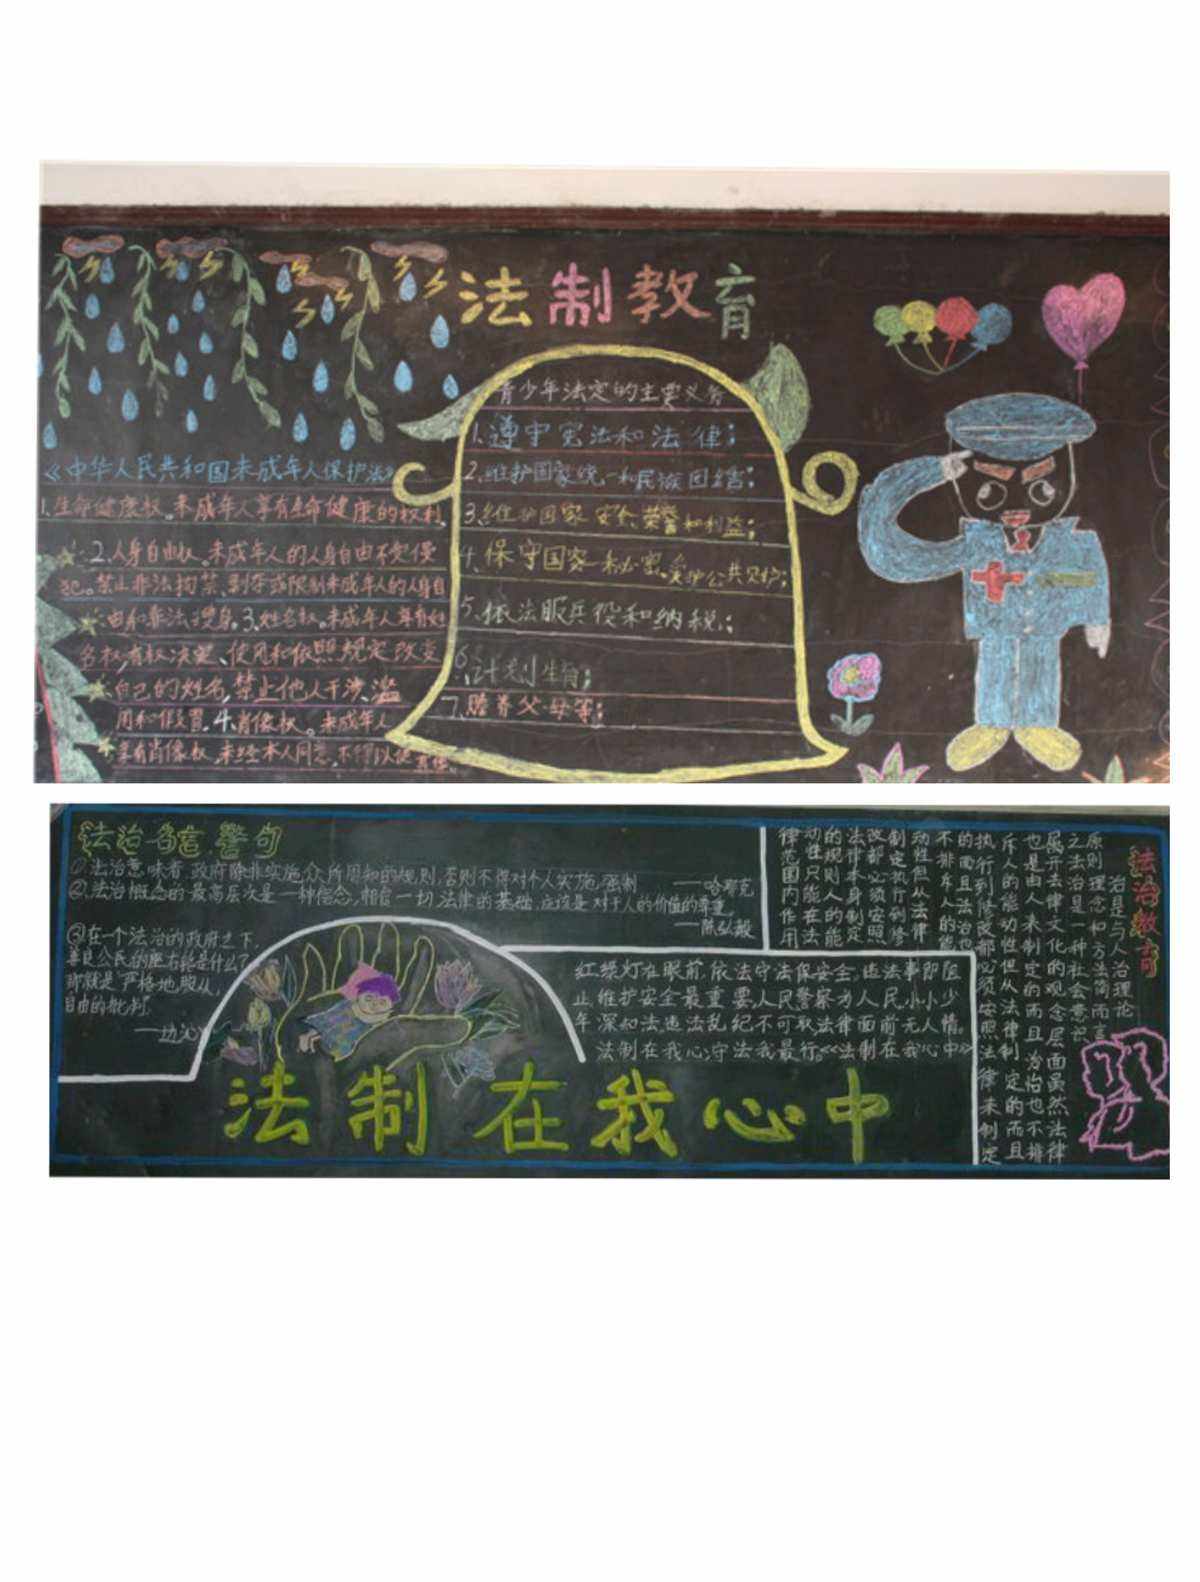 法制教育
《中华人民共和国未成年人保护法》
1、生命健康权。未成年人享有生命健康的权利。
2、人身自由权。未成年人的人身自由不受侵
犯。禁止非法拘禁、剥夺或限制未成年人的人身自
由和非法搜身。3、姓名权。未成年人享有姓
名权,有权决定、使用和依照规定改变
自己的姓名,禁止他人干涉、滥
用和作设置。4、肖像权。未成年人
享有肖像权,未经本人同意,不得以使
青少年法定的主要义务
1、遵守宪法和法律;
2、维护国家统一和民族团结;
3、维护国家安全、荣誉和利益;
4、保守国家秘密、爱护公共财物;
5、依法服兵役和纳税;
6、计划生育;
7、赡养父母等;
法治名言警句
①、法治意味着,政府除非实施众所周知的规则,否则不得对个人实施强制
——哈耶克
②、法治概念的最高层次是一种信念,相信一切法律的基础,应该是对于人的价值的尊重。
——陈弘毅
③在一个法治的政府之下,
善良公民的座右铭是什么?
那就是“严格地服从,
自由的批判”
——边沁
法制在我心中
红绿灯在眼前,依法守法保安全,违法事即阻
止维护安全最重要,人民警察为人民,小小少
年深知法,违法乱纪不可取,法律面前无人情。
法制在我心,守法我最行。《法制在我心中》
法治教育
治是与人治理论
原则理念和方法简而言
之法治是一种社会意识
属于法律文化的观念层面虽然法律
也是由人来制定的而且治怡也不排
斥人的能动性但从法律制定的而且
执行到修改都必须安照法律来制定
的而且法治也
不排斥人的能
动性但从法律
制定执行到修
改都必须安照
法律本身制定
的规则人的能
动性只能在法
律范围内作用